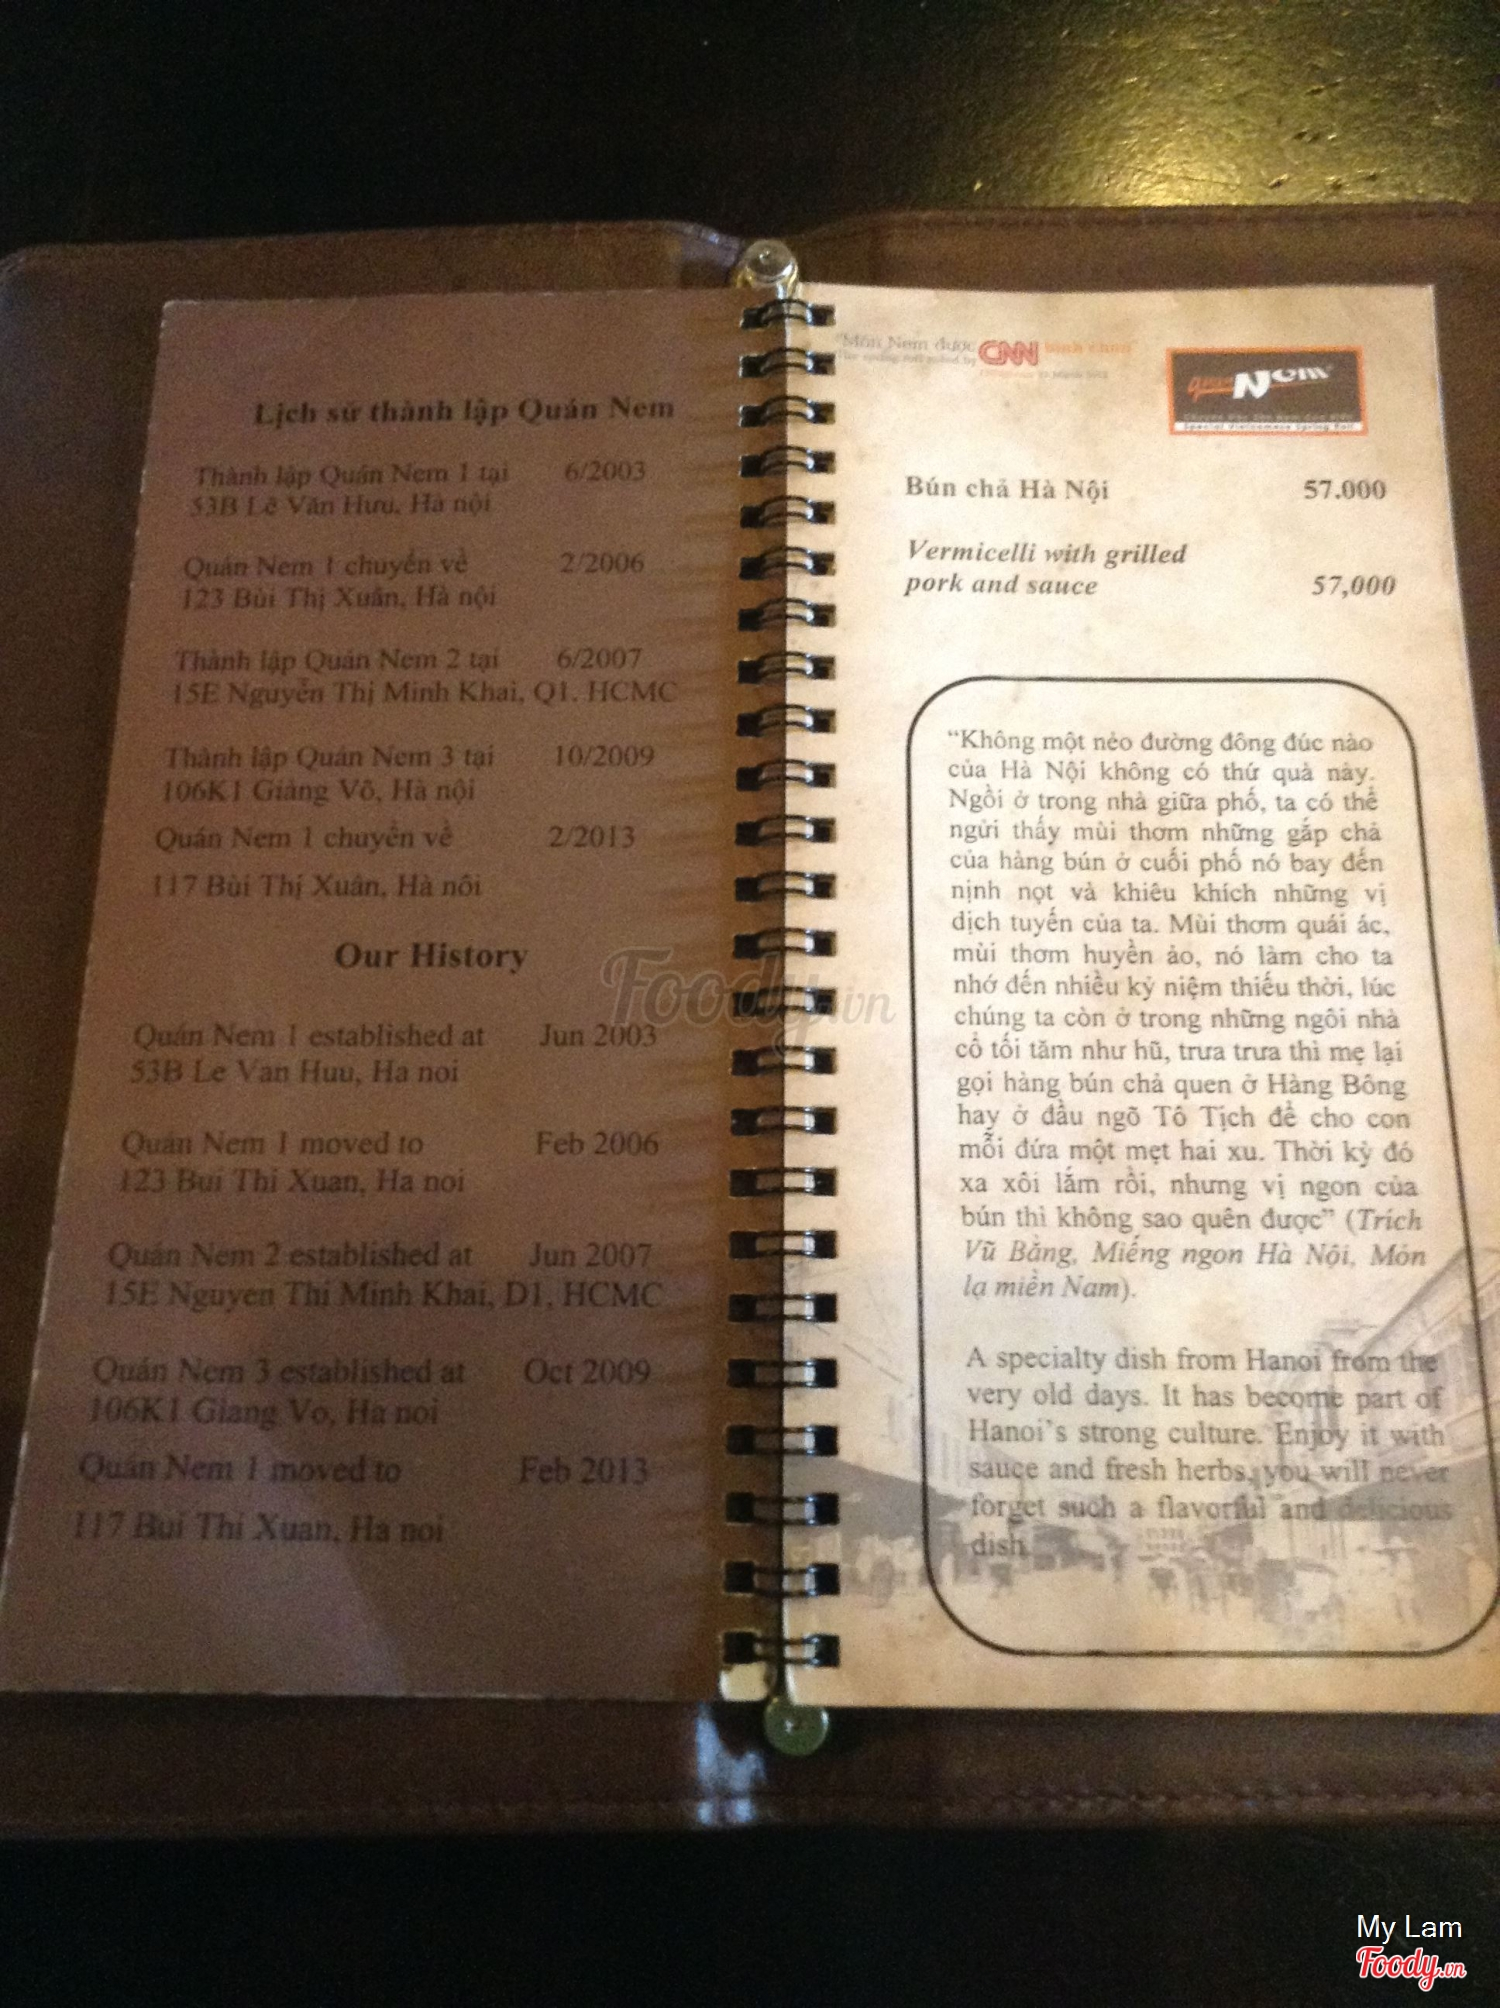 Lịch sử thành lập Quán Nem
Thành lập Quán Nem 1 tại 6/2003
53B Lê Văn Hưu, Hà nội
Quán Nem 1 chuyển về 2/2006
123 Bùi Thị Xuân, Hà nội
Thành lập Quán Nem 2 tại 6/2007
15E Nguyễn Thị Minh Khai, Q1, HCMC
Thành lập Quán Nem 3 tại 10/2009
106K1 Giảng Võ, Hà nội
Quán Nem 1 chuyển về 2/2013
117 Bùi Thị Xuân, Hà nôi
Our History
Quán Nem 1 established at Jun 2003
53B Le Van Huu, Ha noi
Quán Nem 1 moved to Feb 2006
123 Bui Thi Xuan, Ha noi
Quán Nem 2 established at Jun 2007
15E Nguyen Thi Minh Khai, D1, HCMC
Quán Nem 3 established at Oct 2009
106K1 Giang Vo, Ha noi
Quán Nem 1 moved to Feb 2013
117 Bui Thi Xuan, Ha noi
"Món Nem được CNN bình chọn"
quán Nem
Special Vietnamese Spring Roll
Bún chả Hà Nội 57.000
Vermicelli with grilled
pork and sauce 57,000
“Không một nẻo đường đông đúc nào
của Hà Nội không có thứ quà này.
Ngồi ở trong nhà giữa phố, ta có thể
ngửi thấy mùi thơm những gắp chả
của hàng bún ở cuối phố nó bay đến
nịnh nọt và khiêu khích những vị
dịch tuyến của ta. Mùi thơm quái ác,
mùi thơm huyền ảo, nó làm cho ta
nhớ đến nhiều kỷ niệm thiếu thời, lúc
chúng ta còn ở trong những ngôi nhà
cổ tối tăm như hũ, trưa trưa thì mẹ lại
gọi hàng bún chả quen ở Hàng Bông
hay ở đầu ngõ Tô Tịch để cho con
mỗi đứa một mẹt hai xu. Thời kỳ đó
xa xôi lắm rồi, nhưng vị ngon của
bún thì không sao quên được” (Trích
Vũ Bằng, Miếng ngon Hà Nội, Món
lạ miền Nam).
A specialty dish from Hanoi from the
very old days. It has become part of
Hanoi’s strong culture. Enjoy it with
sauce and fresh herbs, you will never
forget such a flavorful and delicious
dish.
Foody.vn
My Lam
Foody.vn